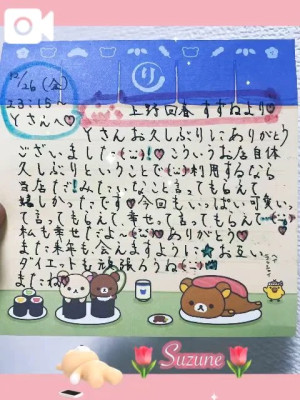 12/26(金)
23:15〜
Yさんへ♡
り
上野回春 すずねより♡
Yさんお久しぶりにありがとう
ございました(˶ᵕ˶)!♡こういうお店自体
久しぶりということで(˶ᵕ˶)利用するなら
当店だ!みたいなこと言ってもらえて
嬉しかったです♡今回もいっぱい可愛い
って言ってもらえて幸せって言ってもらえて
私も幸せだよ〜♡ありがとう♡
また来年も会えますように★お互い
ダイエット頑張ろうね
またね♡
Suzune